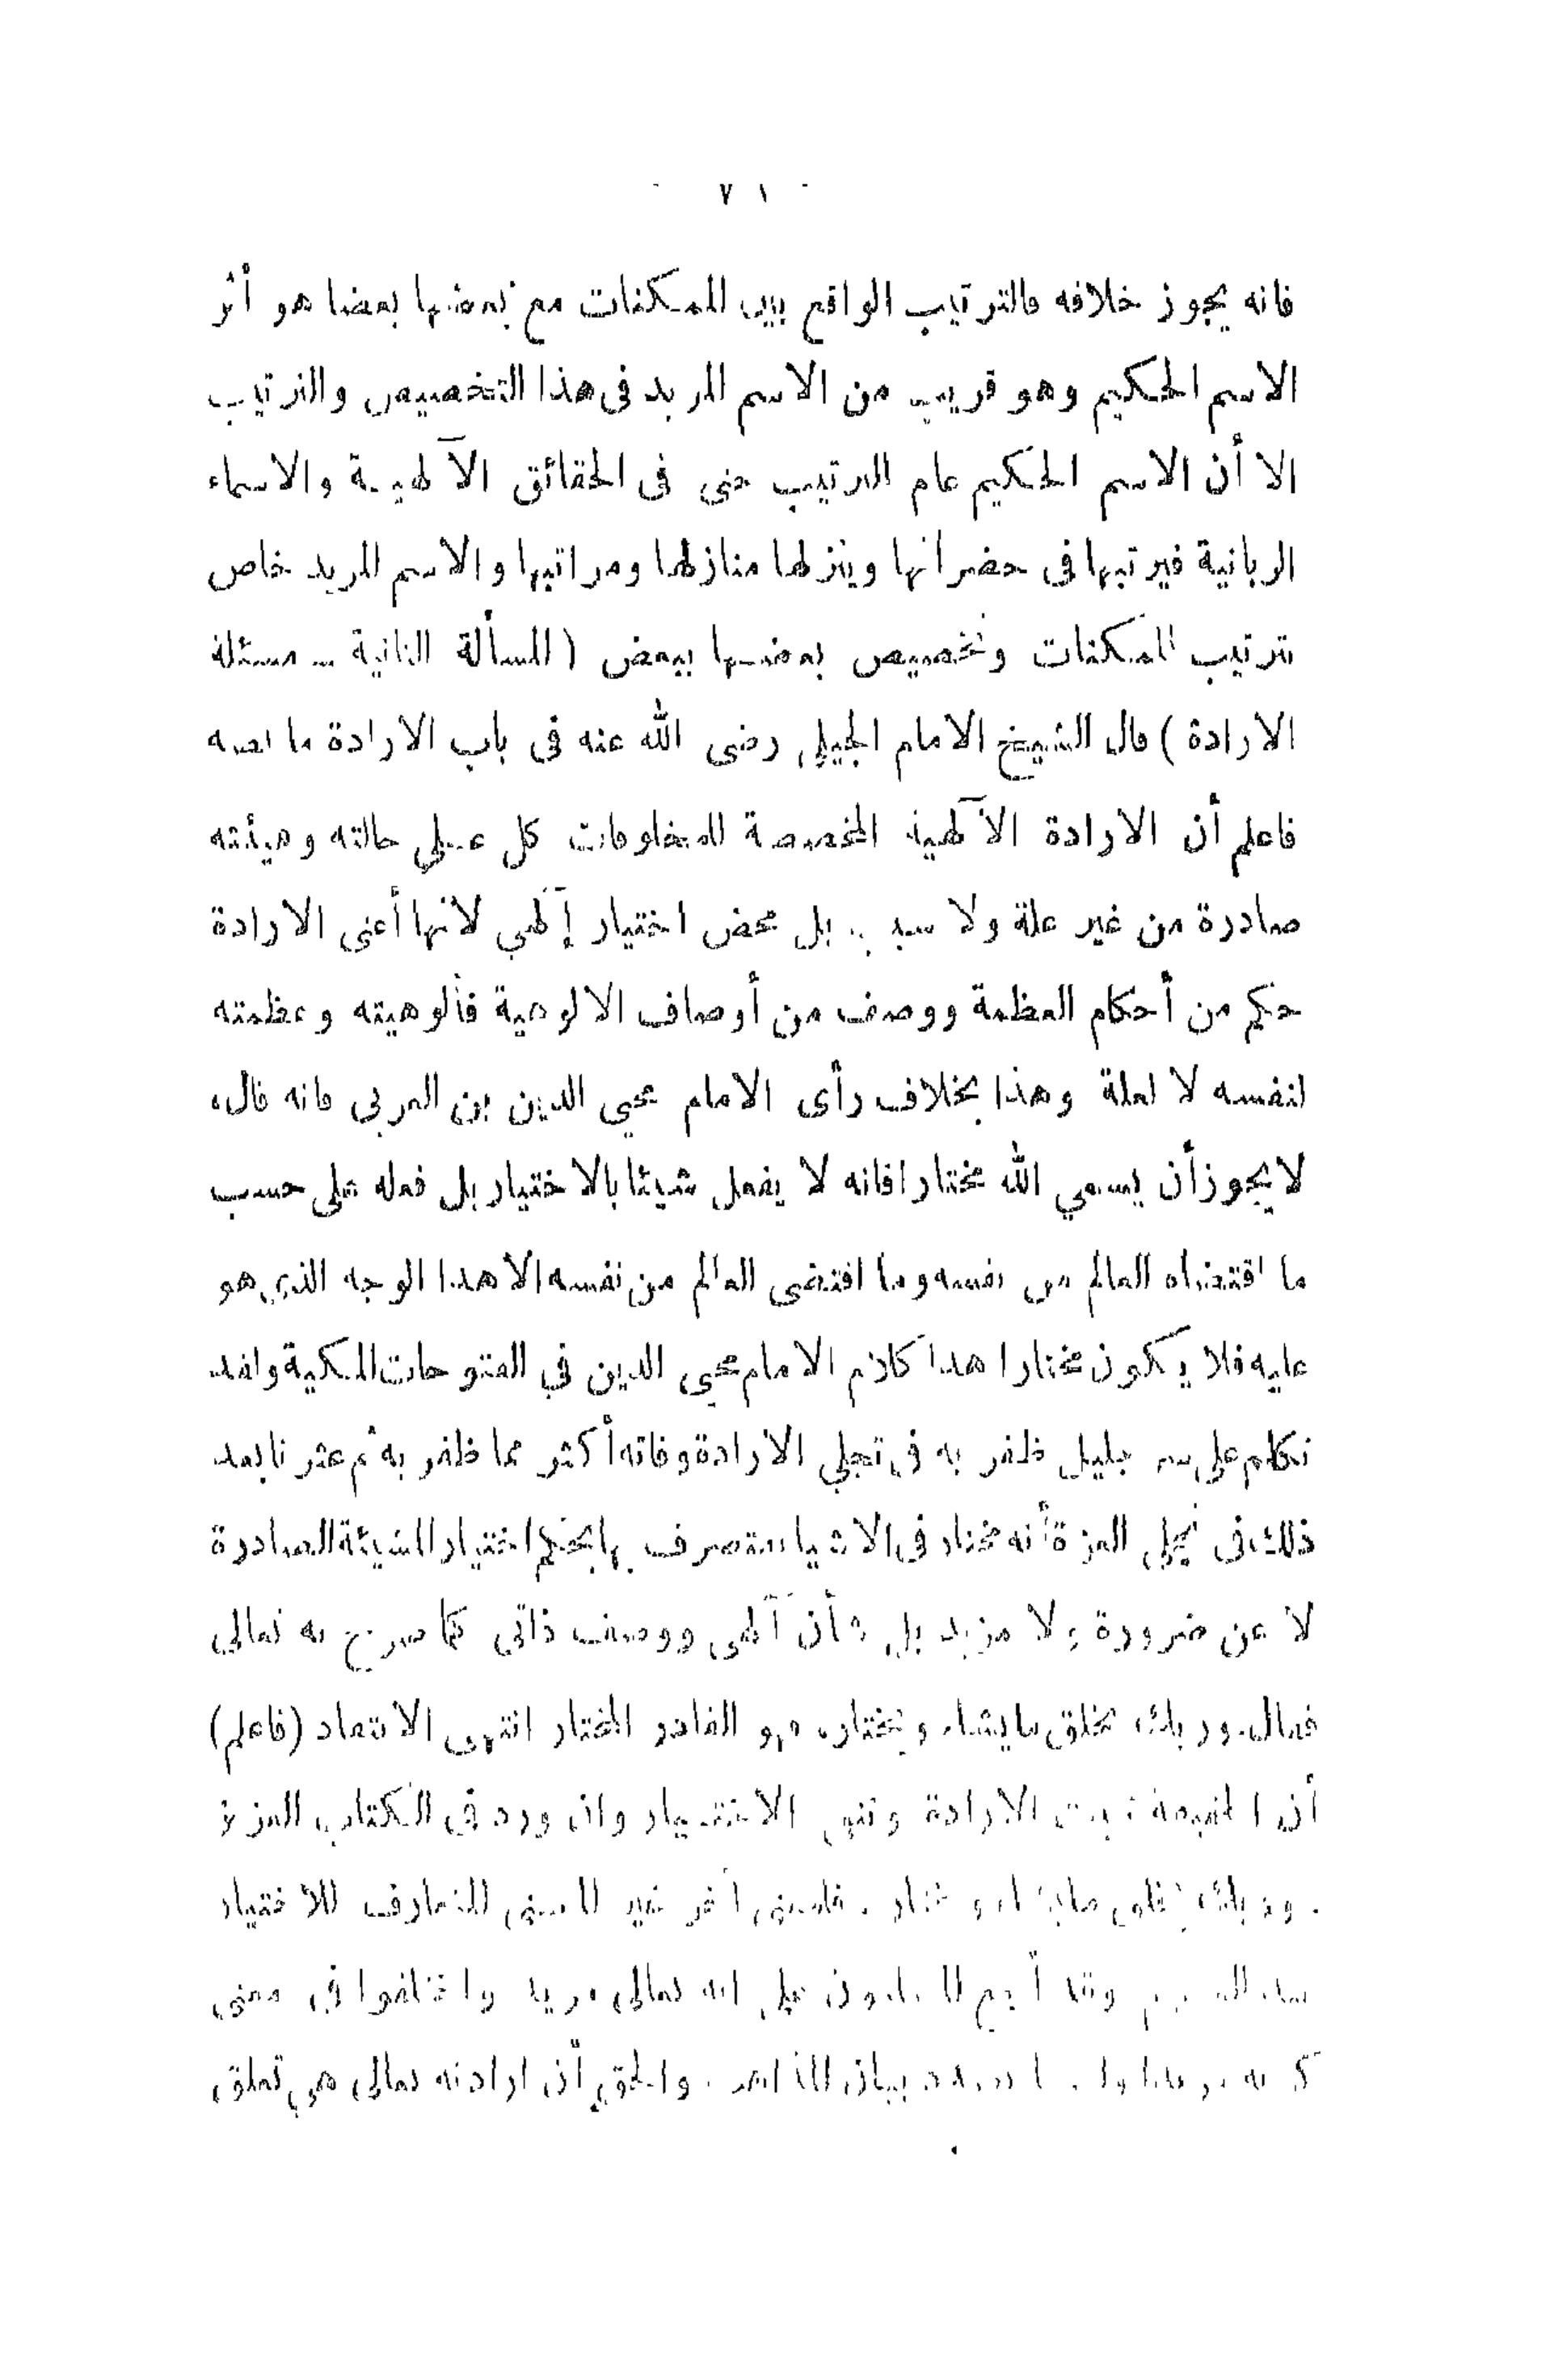 - ٧١ -
فانه يجوز خلافه فالترتيب الواقع بين الممكنات مع بعضها بعضا هو أثر
الاسم الحكيم وهو قريب من الاسم المريد فى هذا التخصيص والترتيب
الا أن الاسم الحكيم عام الترتيب حتى فى الحقائق الآلهية والاسماء
الربانية فيرتبها فى حضراتها وينزلها منازلها ومراتبها والاسم المريد خاص
بترتيب الممكنات وتخصيص بعضها ببعض ( المسألة الثانية – مسئلة
الارادة ) قال الشيخ الامام الجيلى رضى الله عنه فى باب الارادة ما نصه
فاعلم أن الارادة الآلهية المخصصة للمخلوقات كل على حالته وهيئته
صادرة من غير علة ولا سبب بل محض اختيار إلهي لانها أعنى الارادة
حكم من أحكام العظمة ووصف من أوصاف الالوهية فألوهيته وعظمته
لنفسه لا لعلة وهذا بخلاف رأى الامام محيي الدين بن العربى فانه قال
لا يجوز أن يسمي الله مختارا فانه لا يفعل شيئا بالاختيار بل فعله على حسب
ما اقتضاه العالم من نفسه وما اقتضى العالم من نفسه الا هذا الوجه الذى هو
عليه فلا يكون مختارا هذا كلام الامام محيى الدين في الفتوحات المكية ولقد
تكلم على سر جليل ظفر به فى تجلي الارادة وفاته أكثر مما ظفر به ثم عثرنا بعد
ذلك فى تجلى العزة أنه مختار فى الاشياء متصرف بها بحكم اختيار المشيئة الصادرة
لا عن ضرورة ولا مزيد بل شأن آلهى ووصف ذاتى كما صرح به تعالى
فقال. وربك يخلق ما يشاء ويختار. فهو القادر المختار انتهى الانتقاد (فاعلم)
أن الارادة وتنفى الاختيار وان ورد فى الكتاب العزيز
. وربك يخلق ما يشاء ويختار . فلمعنى آخر غير المعنى المتعارف للاختيار
وقد أجمع المسلمون على انه تعالى مريد واختلفوا فى معنى
بيان المذاهب . والحق أن ارادته تعالى هى تعلق